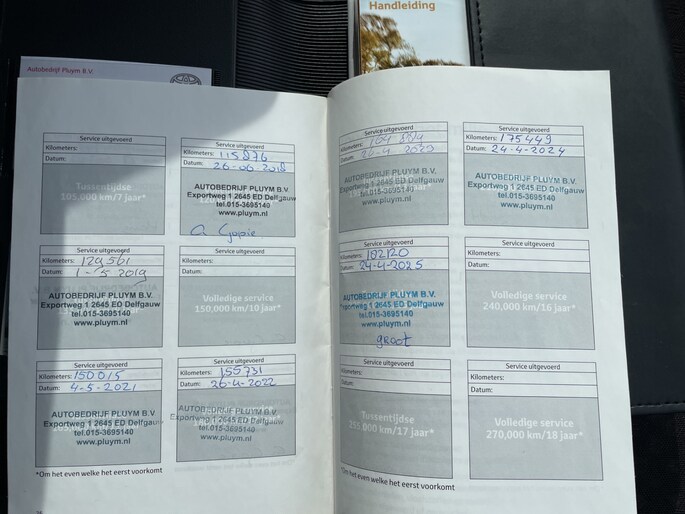 Handleiding
Autobedrijf Pluym B.V.
Service uitgevoerd
Kilometers:
Datum:
Tussentijdse
105,000 km/7 jaar*
Service uitgevoerd
Kilometers: 115876
Datum: 26-06-2018
AUTOBEDRIJF PLUYM B.V.
Exportweg 1 2645 ED Delfgauw
tel.015-3695140
www.pluym.nl
Service uitgevoerd
Kilometers: 129561
Datum: 1-5-2019
AUTOBEDRIJF PLUYM B.V.
Exportweg 1 2645 ED Delfgauw
tel.015-3695140
www.pluym.nl
Service uitgevoerd
Kilometers:
Datum:
Volledige service
150,000 km/10 jaar*
Service uitgevoerd
Kilometers: 150015
Datum: 4-5-2021
AUTOBEDRIJF PLUYM B.V.
Exportweg 1 2645 ED Delfgauw
tel.015-3695140
www.pluym.nl
Service uitgevoerd
Kilometers: 155731
Datum: 26-4-2022
AUTOBEDRIJF PLUYM B.V.
Exportweg 1 2645 ED Delfgauw
tel.015-3695140
www.pluym.nl
*Om het even welke het eerst voorkomt
Service uitgevoerd
Kilometers:
Datum: 24-4-2023
AUTOBEDRIJF PLUYM B.V.
Exportweg 1 2645 ED Delfgauw
tel.015-3695140
www.pluym.nl
Service uitgevoerd
Kilometers: 175449
Datum: 24-4-2024
AUTOBEDRIJF PLUYM B.V.
Exportweg 1 2645 ED Delfgauw
tel.015-3695140
www.pluym.nl
Service uitgevoerd
Kilometers: 182120
Datum: 24-4-2025
AUTOBEDRIJF PLUYM B.V.
Exportweg 1 2645 ED Delfgauw
tel.015-3695140
www.pluym.nl
groot
Service uitgevoerd
Kilometers:
Datum:
Volledige service
240,000 km/16 jaar*
Service uitgevoerd
Kilometers:
Datum:
Tussentijdse
255,000 km/17 jaar*
Service uitgevoerd
Kilometers:
Datum:
Volledige service
270,000 km/18 jaar*
*Om het even welke het eerst voorkomt